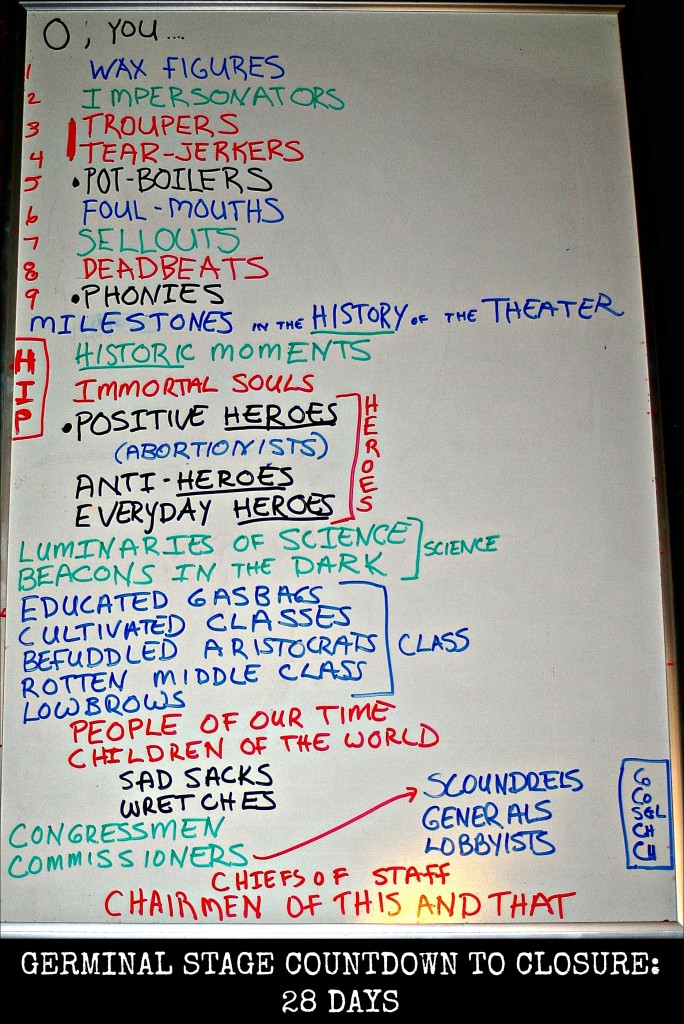 O, YOU....
1 WAX FIGURES
2 IMPERSONATORS
3 TROUPERS
4 TEAR-JERKERS
5 •POT-BOILERS
6 FOUL-MOUTHS
7 SELLOUTS
8 DEADBEATS
9 •PHONIES
MILESTONES IN THE HISTORY OF THE THEATER
HIP
HISTORIC MOMENTS
IMMORTAL SOULS
•POSITIVE HEROES
(ABORTIONISTS)
ANTI-HEROES
EVERYDAY HEROES
HEROES
LUMINARIES OF SCIENCE
BEACONS IN THE DARK
SCIENCE
EDUCATED GASBAGS
CULTIVATED CLASSES
BEFUDDLED ARISTOCRATS
ROTTEN MIDDLE CLASS
LOWBROWS
CLASS
PEOPLE OF OUR TIME
CHILDREN OF THE WORLD
SAD SACKS
WRETCHES
CONGRESSMEN
COMMISSIONERS
SCOUNDRELS
GENERALS
LOBBYISTS
CO
S&L
CH
CH
CHIEFS OF STAFF
CHAIRMEN OF THIS AND THAT
GERMINAL STAGE COUNTDOWN TO CLOSURE:
28 DAYS